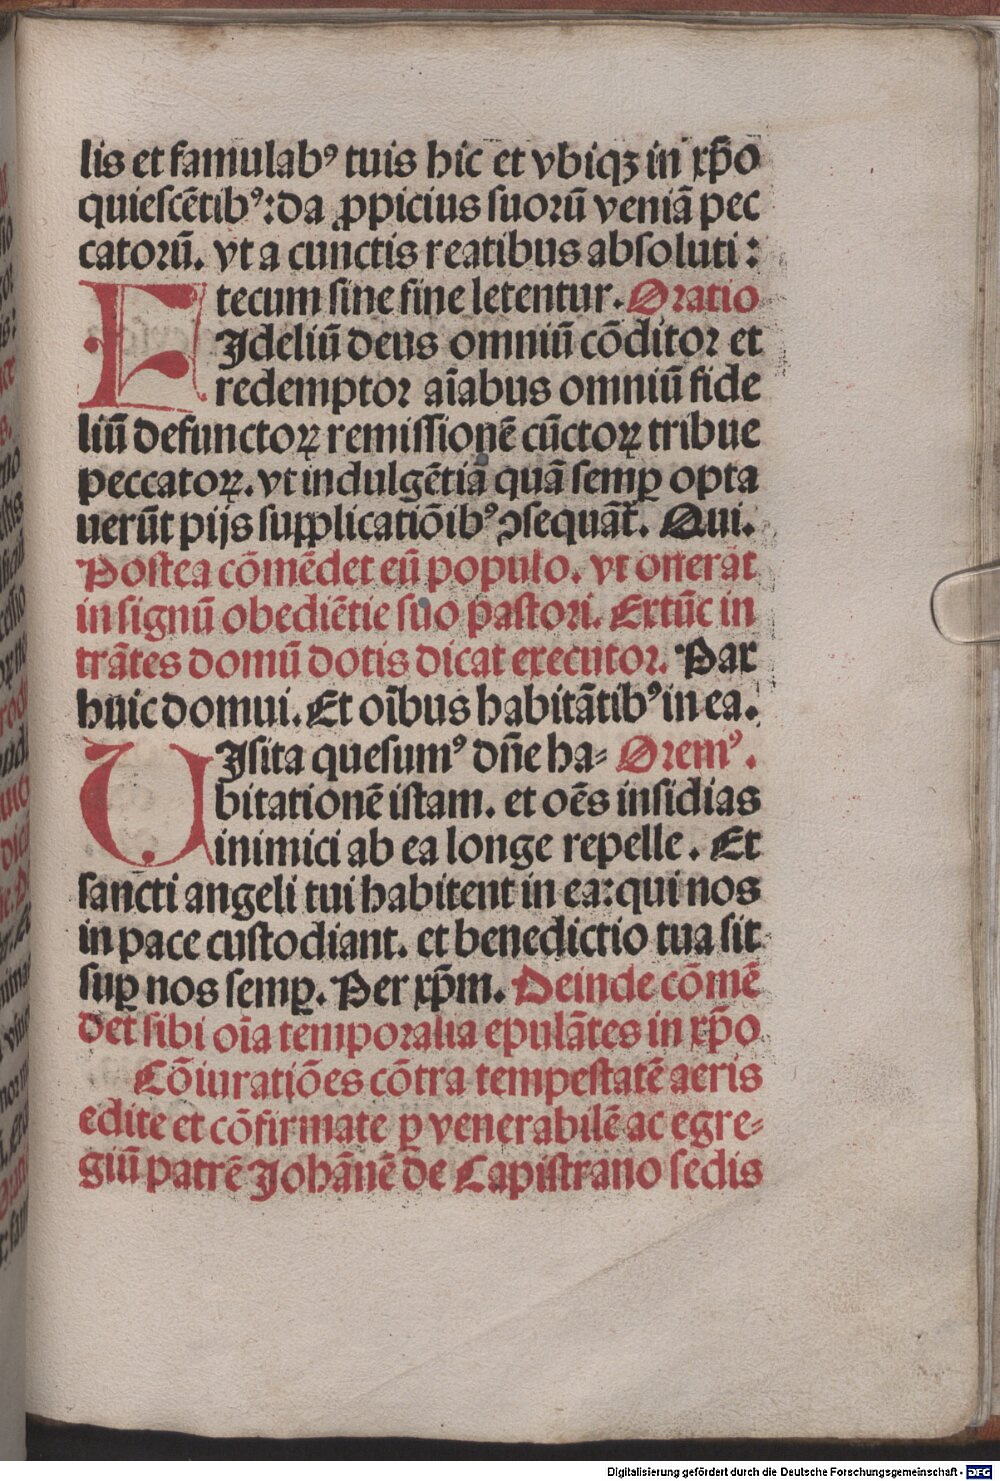 lis et famulabꝰ tuis hic et vbiqꝫ in xp̄o
quiescētibꝰ: da ꝓpicius suorū veniā pec
catorū. vt a cunctis reatibus absoluti:
tecum sine fine letentur. Oratio
EIdeliū deus omniū cōditor et
redemptor aīabus omniū fide
liū defunctoꝝ remissionē cūctoꝝ tribue
peccatoꝝ. vt indulgētiā quā semꝑ opta
uerūt pijs supplicatiōibꝰ ꝯsequāt̄. Qui.
Postea cōmēdet eū populo. vt offerāt
in signū obediētie suo pastori. Extūc in
trātes domū dotis dicat executor. Pax
huic domui. Et oībus habitātibꝰ in ea.
VIsita quesumꝰ dn̄e ha⸗ Oremꝰ.
bitationē istam. et oēs insidias
inimici ab ea longe repelle. Et
sancti angeli tui habitent in ea: qui nos
in pace custodiant. et benedictio tua sit
suꝑ nos semꝑ. Per xp̄m. Deinde cōmē
det sibi oīa temporalia epulātes in xp̄o
Cōiuratiōes cōtra tempestatē aeris
edite et cōfirmate ꝑ venerabilē ac egre⸗
giū patrē Johānē de Capistrano sedis
Digitalisierung gefördert durch die Deutsche Forschungsgemeinschaft - DFG